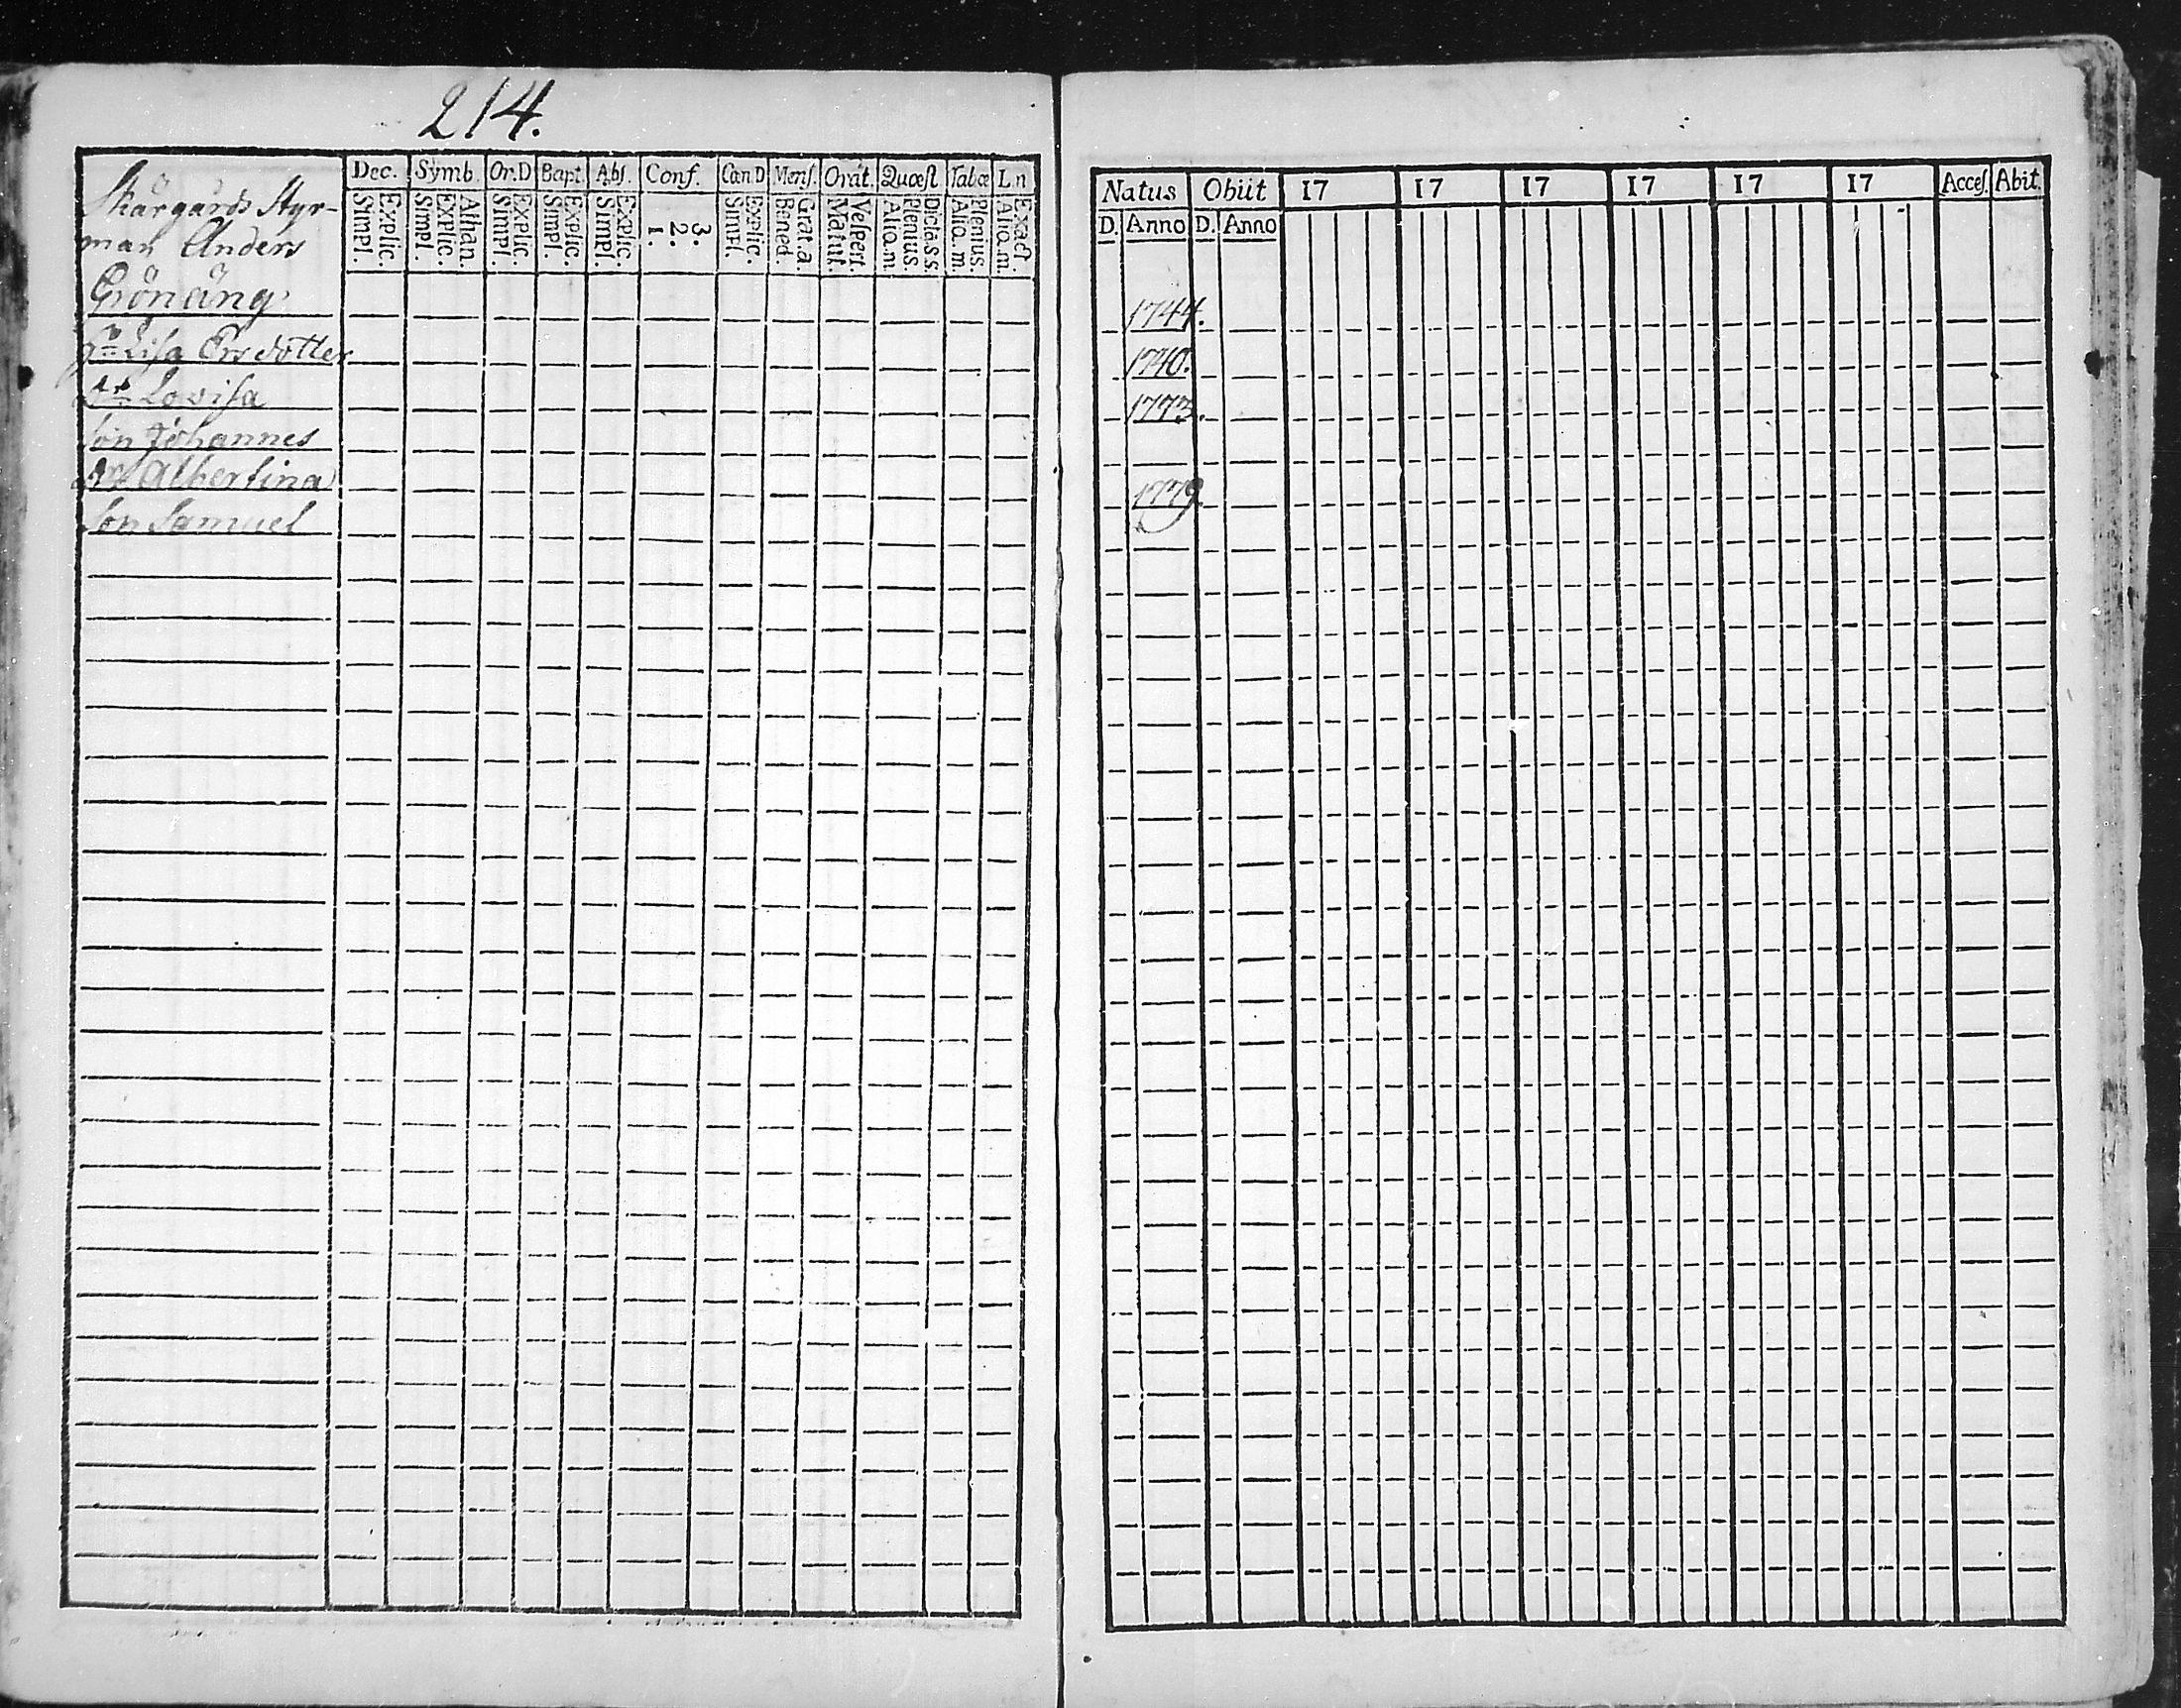 214.
Dec. Symb. Or.D Bapt. Abs. Conf. Can D Mens. Orat. Quæst Tabæ Ln
Simpl. Explic. Simpl. Explic. Athan. Simpl. Explic. Simpl. Explic. Simpl. Explic. 1. 2. 3. Simpl. Explic. Bened. Grat.a. Matut. Vespert. Alio.m. Plenius. Dicta.s.s. Alio.m. Plenius. Alio.m. Exact.
Skärgårds Styr-
man Anders
Grönäng
Lisa Ersdotter
Dr Lovisa
son Johannes
Dr Albertina
son Samuel
Natus Obiit 17 17 17 17 17 17 Acces. Abit.
D. Anno D. Anno
1744.
1740.
1773.
1779.